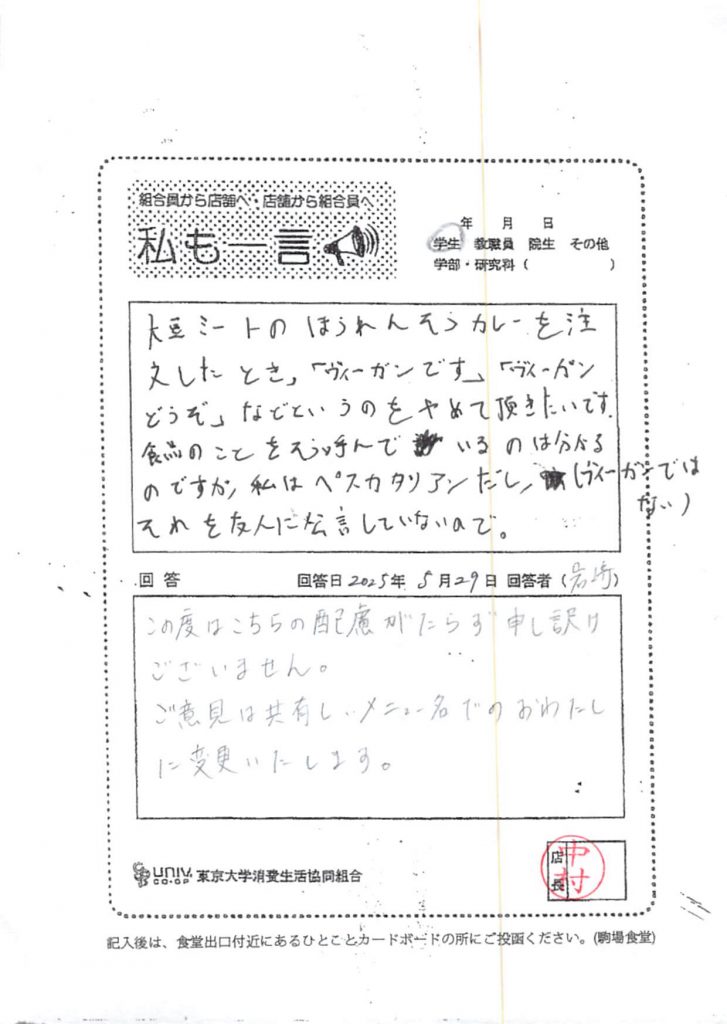 組合員から店舗へ・店舗から組合員へ
私も一言
年 月 日
学生 教職員 院生 その他
学部・研究科 ( )
大豆ミートのほうれんそうカレーを注
文したとき、「ヴィーガンです」「ヴィーガン
どうぞ」などというのをやめて頂きたいです。
食品のことをそう呼んでいるのは分かる
のですが、私はペスカタリアンだし、(ヴィーガンでは
ない)
それを友人に公言していないので。
回答 回答日2025年 5月29日 回答者 (岩崎)
この度はこちらの配慮がたらず申し訳け
ございません。
ご意見は共有し、メニュー名でのおわたし
に変更いたします。
UNIV. CO-OP 東京大学消費生活協同組合
店長
中村
記入後は、食堂出口付近にあるひとことカードボードの所にご投函ください。(駒場食堂)